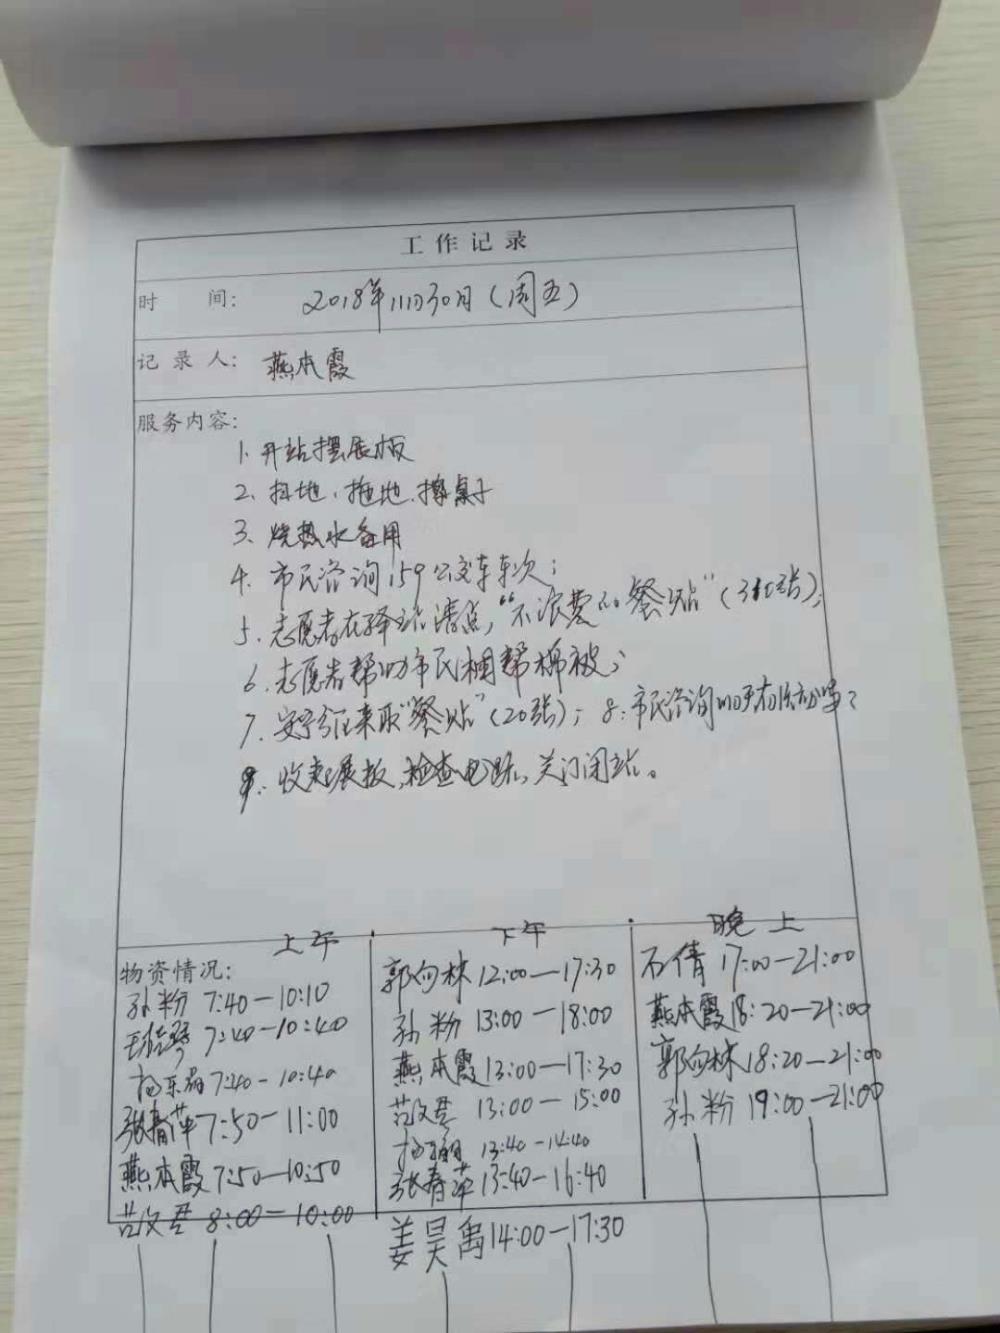 工作记录
时 间: 2018年11月30日(周五)
记 录 人: 燕本霞
服务内容:
1. 开站摆展板
2. 扫地、拖地、擦桌子
3. 烧热水备用
4. 市民咨询159公交车车次;
5. 志愿者在驿站清点,“不浪费的餐贴”(310张);
6. 志愿者帮助市民捆帮棉被;
7. 来取“餐贴”(20张); 8. 市民咨询
9. 收起展板,检查电路,关门闭站。
上午 下午 晚上
物资情况:
孙粉 7:40—10:10
7:40—10:40
7:40—10:40
张春萍 7:50—11:00
燕本霞 7:50—10:50
范文君 8:00—10:00
郭向林 12:00—17:30
孙粉 13:00—18:00
燕本霞 13:00—17:30
范文君 13:00—15:00
13:40—14:40
张春萍 13:40—16:40
姜昊禹 14:00—17:30
石倩 17:00—21:00
燕本霞 18:20—21:00
郭向林 18:20—21:00
孙粉 19:00—21:00